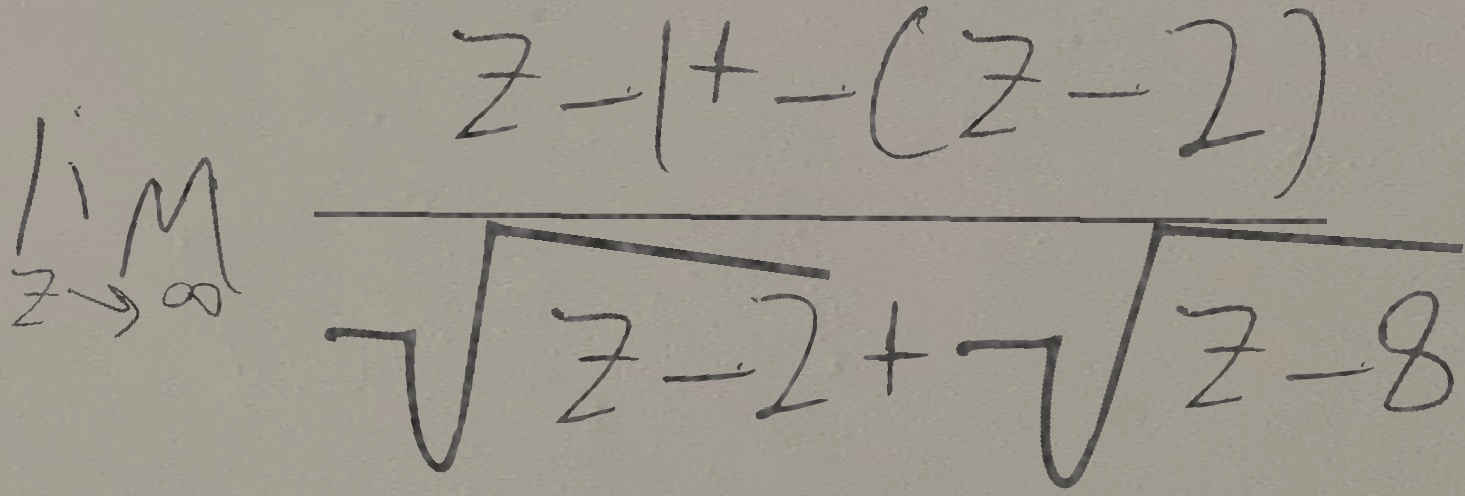 \lim_{z \to \infty} \frac{z-1+-(z-2)}{\sqrt{z-2}+\sqrt{z-8}}